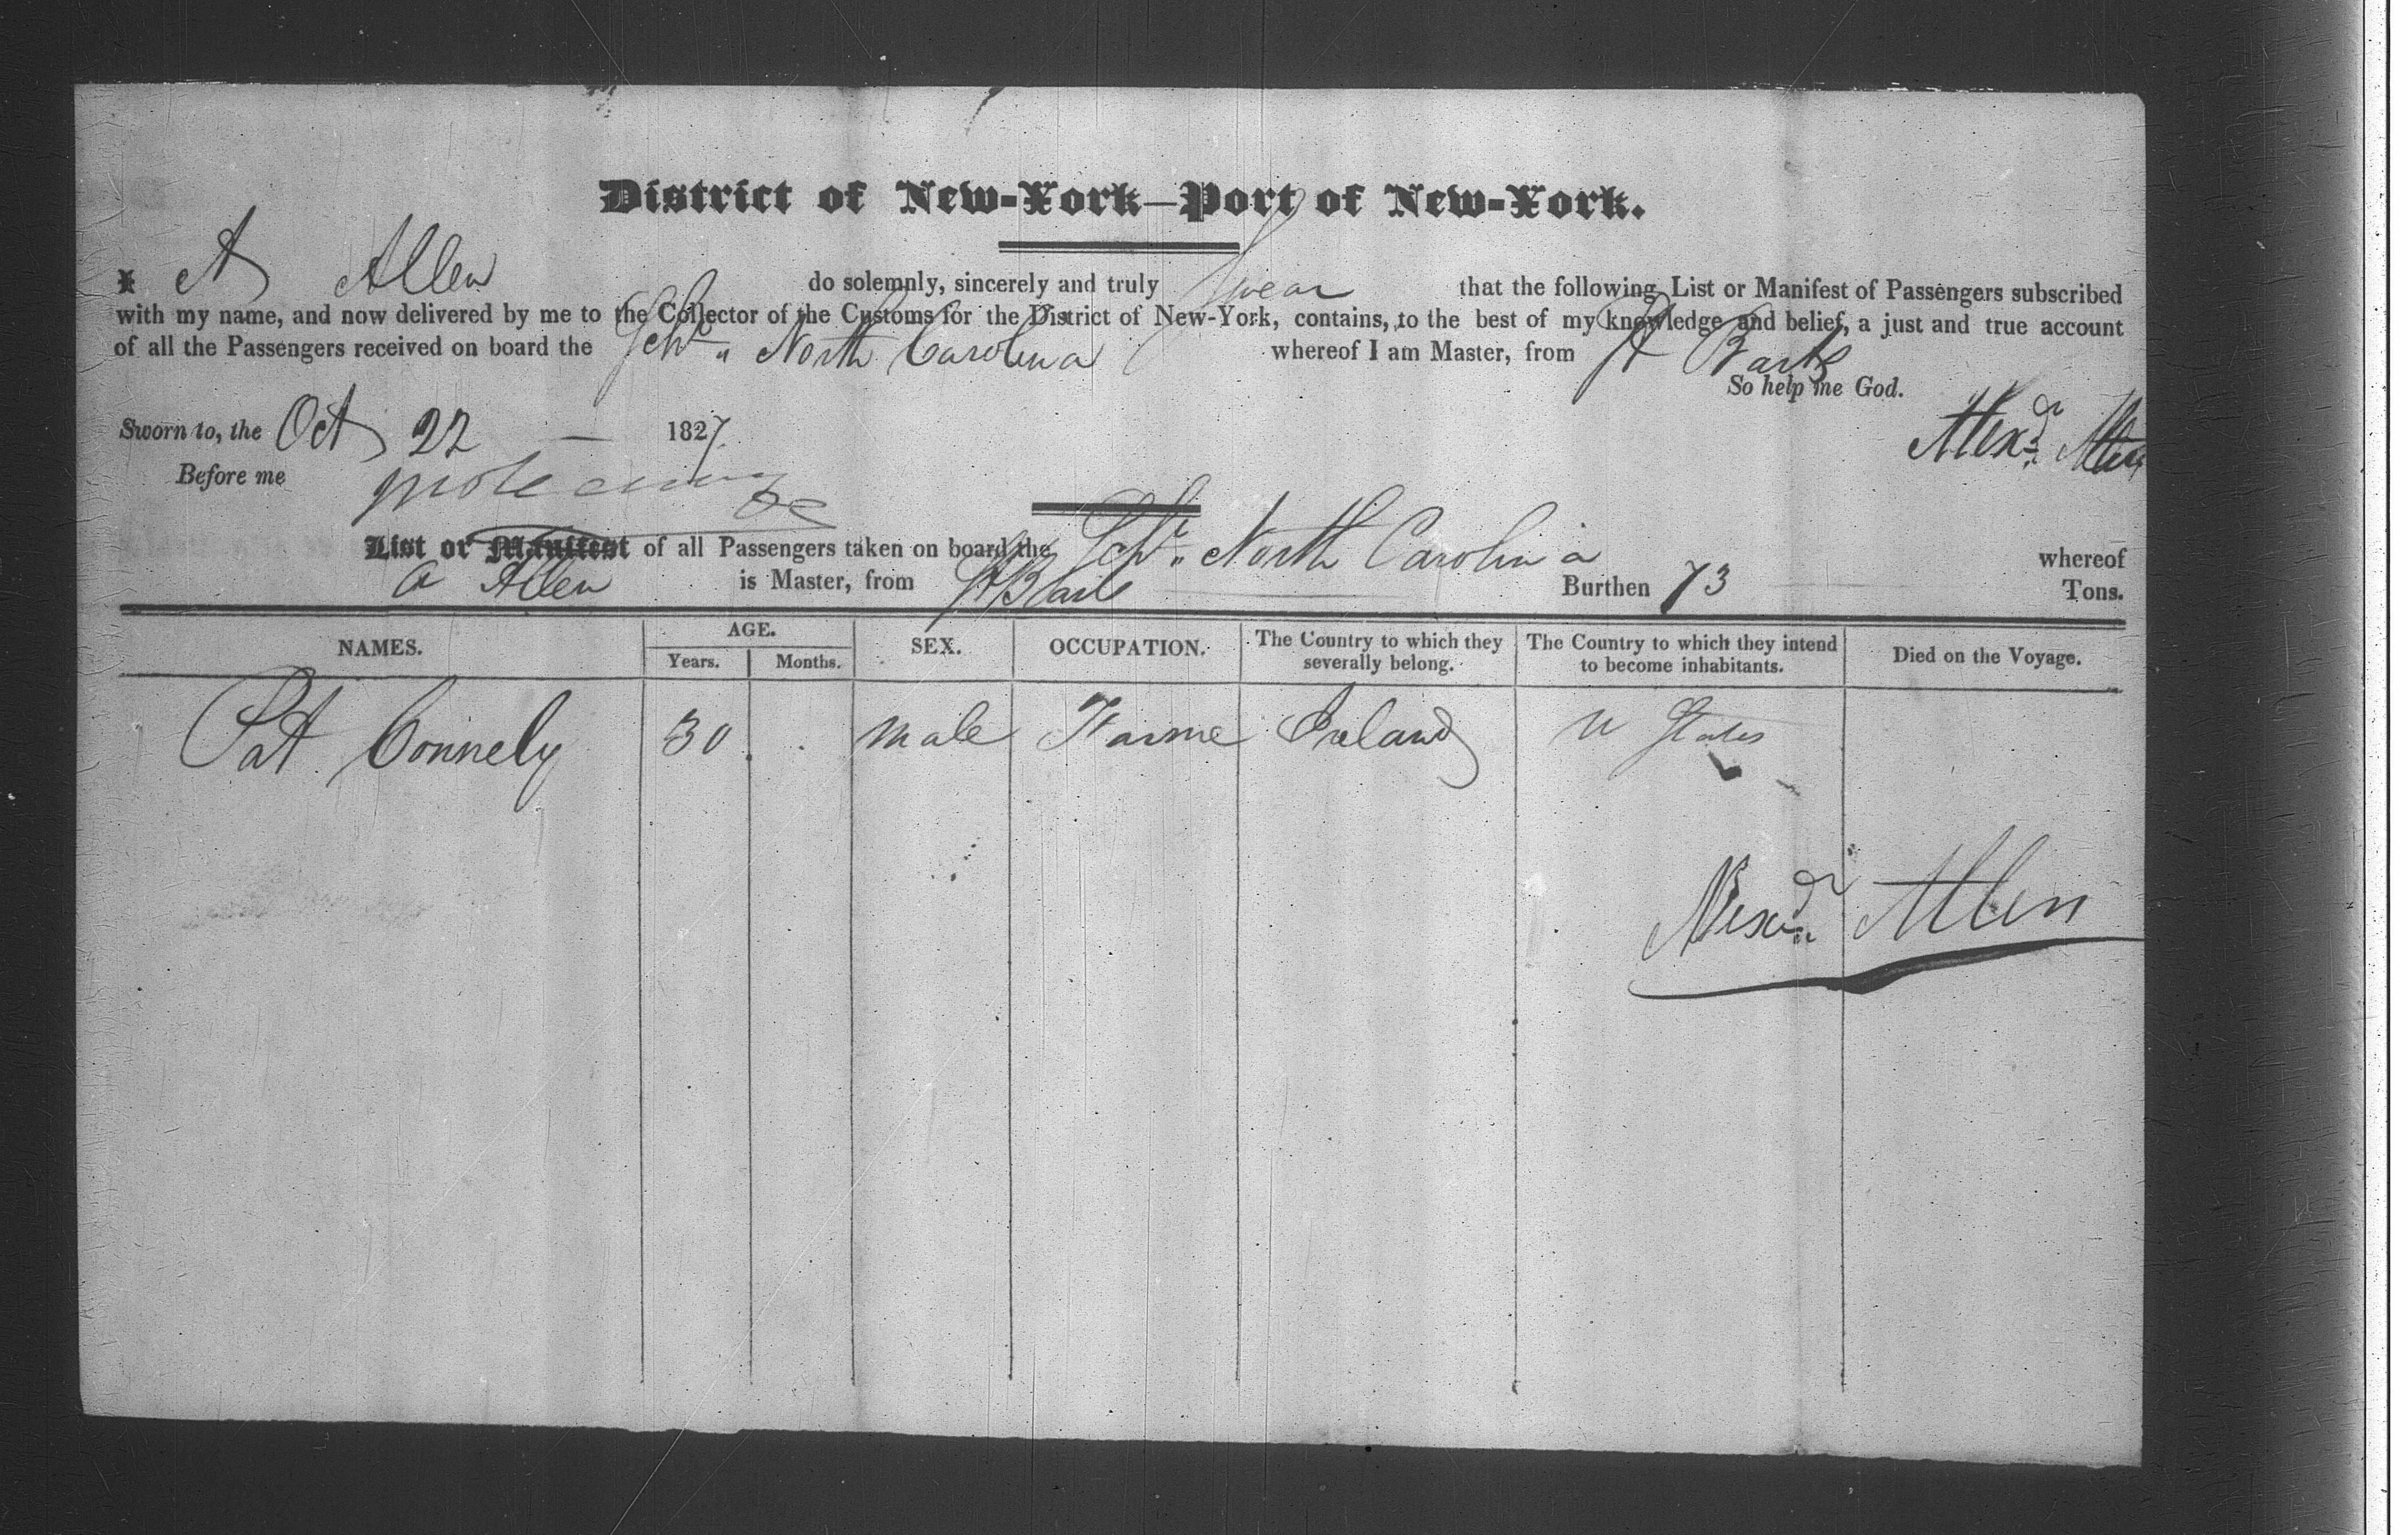 District of New-York—Port of New-York.
I A Allen do solemnly, sincerely and truly swear that the following List or Manifest of Passengers subscribed
with my name, and now delivered by me to the Collector of the Customs for the District of New-York, contains, to the best of my knowledge and belief, a just and true account
of all the Passengers received on board the Schr North Carolina whereof I am Master, from St Barts
So help me God.
Sworn to, the Oct 22 — 1827.
Alexdr Allen
Before me
List or Manifest of all Passengers taken on board the Schr North Carolina whereof
A Allen is Master, from St Barts Burthen 73 Tons.
NAMES. AGE. SEX. OCCUPATION. The Country to which they severally belong. The Country to which they intend to become inhabitants. Died on the Voyage.
Years. Months.
Pat Connely 30 male Farme Ireland U States
Alexdr Allen